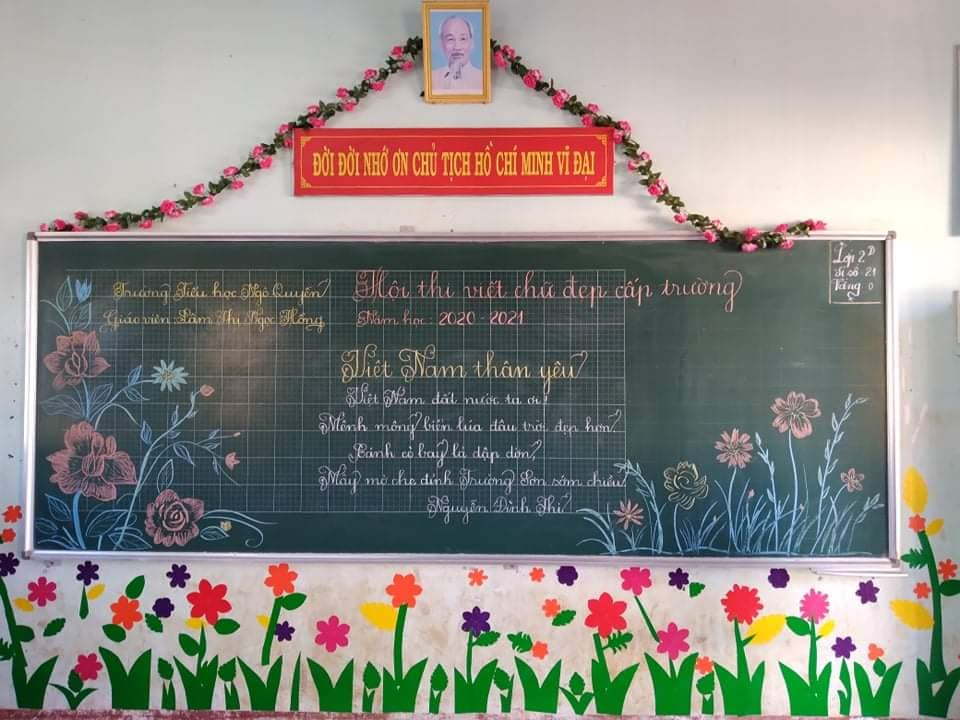 ĐỜI ĐỜI NHỚ ƠN CHỦ TỊCH HỒ CHÍ MINH VĨ ĐẠI
Trường Tiểu học Ngô Quyền
Giáo viên: Lâm Thị Ngọc Hồng
Hội thi viết chữ đẹp cấp trường
Năm học: 2020 - 2021
Lớp 2D
Sĩ số 21
Vắng 0
Việt Nam thân yêu
Việt Nam đất nước ta ơi!
Mênh mông biển lúa đâu trời đẹp hơn
Cánh cò bay lả dập dờn,
Mây mờ che đỉnh Trường Sơn sớm chiều.
Nguyễn Đình Thi